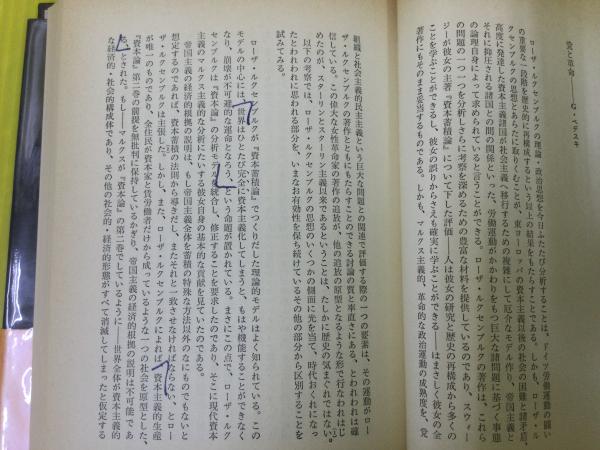 党と革命――G・ベデスキ
ローザ・ルクセンブルクの理論・政治思想を今日ふたたび分析することは、ドイツ労働運動の闘い
の重要な一段階を歴史的に再構成するという以上の結果をもたらすことである。しかも、ローザ・ル
クセンブルクの思想とあらたに取りくむことが、東ヨーロッパの資本主義以後の社会の困難と諸矛盾、
高度に発達した資本主義諸国が社会主義へ移行するための複雑にして厄介なモデル作り、帝国主義と
それに抑圧される諸国との間の関係といった、労働運動がかかわりをもつ巨大な諸問題に基づく事態
の論理自身によって求められていると言うことができる。ローザ・ルクセンブルクの著作は、これら
の問題の一つ一つを分析しさらに考察を深めるための豊富な材料を提供しているのであり、スウィー
ジーが彼女の主著『資本蓄積論』について下した評価――人は彼女の研究と歴史の再構成から多くの
ことを学ぶことができるし、彼女の誤りからさえも確実に学ぶことができる――はまさしく彼女の全
著作にもそのまま妥当するものである。しかも、マルクス主義的、革命的な政治運動の成熟度を、党
組織と社会主義的民主主義という巨大な問題との関連で評価する際の一つの要素は、その運動がロー
ザ・ルクセンブルクの著作とともにもたらすことのできる討論の質と率直さにある、とわれわれは確
信している。この偉大な女性革命家の著作の追放が、他の追放の原型となるような形で行なわれはじ
めたのが、スターリンとスターリン主義以来であるということは、たしかに歴史の気まぐれではない。
以下の考察では、ローザ・ルクセンブルクの思想のいくつかの側面に光を当て、時代おくれになっ
たとわれわれに思われる部分を、いまなお有効性を保ち続けているその他の部分から区別することを
試みてみる。
ローザ・ルクセンブルクが『資本蓄積論』でつくりだした理論的モデルはよく知られている。この
モデルの中心には、世界はひとたび完全に資本主義化してしまうと、もはや機能することができなく
なり、崩壊が不可避的な運命となろう、という命題が置かれている。まさにこの点で、ローザ・ルク
センブルクは『資本論』の分析モデルを統合し、修正することを要求したのであり、そこに現代資本
主義のマルクス主義的な分析にたいする彼女自身の基本的な貢献を見ていたのである。
帝国主義の経済的根拠の説明は、もし帝国主義が資本蓄積の特殊な方法以外のなにものでもないと
想定するのであれば、資本蓄積の法則から導きだし、またそれと一致させなければならない、とロー
ザ・ルクセンブルクは主張した。しかし、また、ローザ・ルクセンブルクによれば、資本主義的生産
が唯一のものであり、全住民が資本家と賃労働者だけから成っているような一つの社会を原型とした、
『資本論』第二巻の前提を無批判に保持しているかぎり、帝国主義の経済的根拠の説明は不可能であ
る、とされた。もし――マルクスが『資本論』の第二巻でしているように――世界全体が資本主義的
な経済的・社会的構成体であり、その他の社会的・経済的形態がすべて消滅してしまったと仮定する